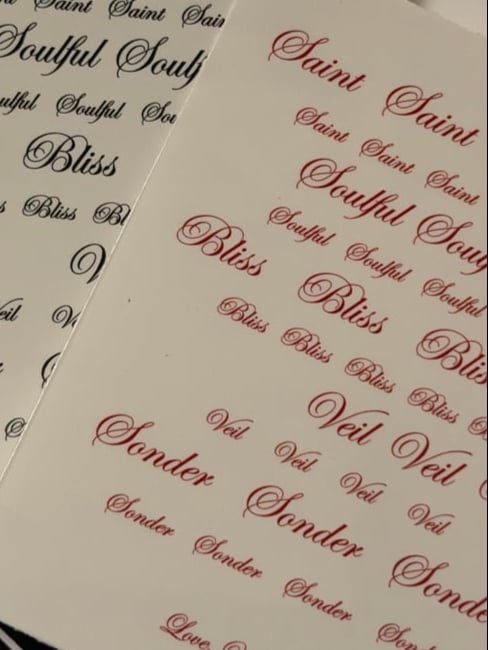 Saint Saint Sain
Soulful Soulf
Soulful Sou
Bliss
Bliss Bl
V
eil Ve
S
Saint Saint
Saint Saint Saint
Soulful Soulf
Soulful Soulful Soulful
Bliss Bliss Blis
Bliss Bliss Bliss Bliss B
Veil Veil
Veil Veil Veil Veil
Sonder Sonder Sonde
Sonder Sonder Sonder Sond
Love